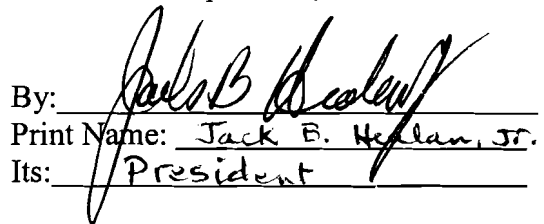 By:
Print Name: Jack B. Henlan, Jr.
Its: President